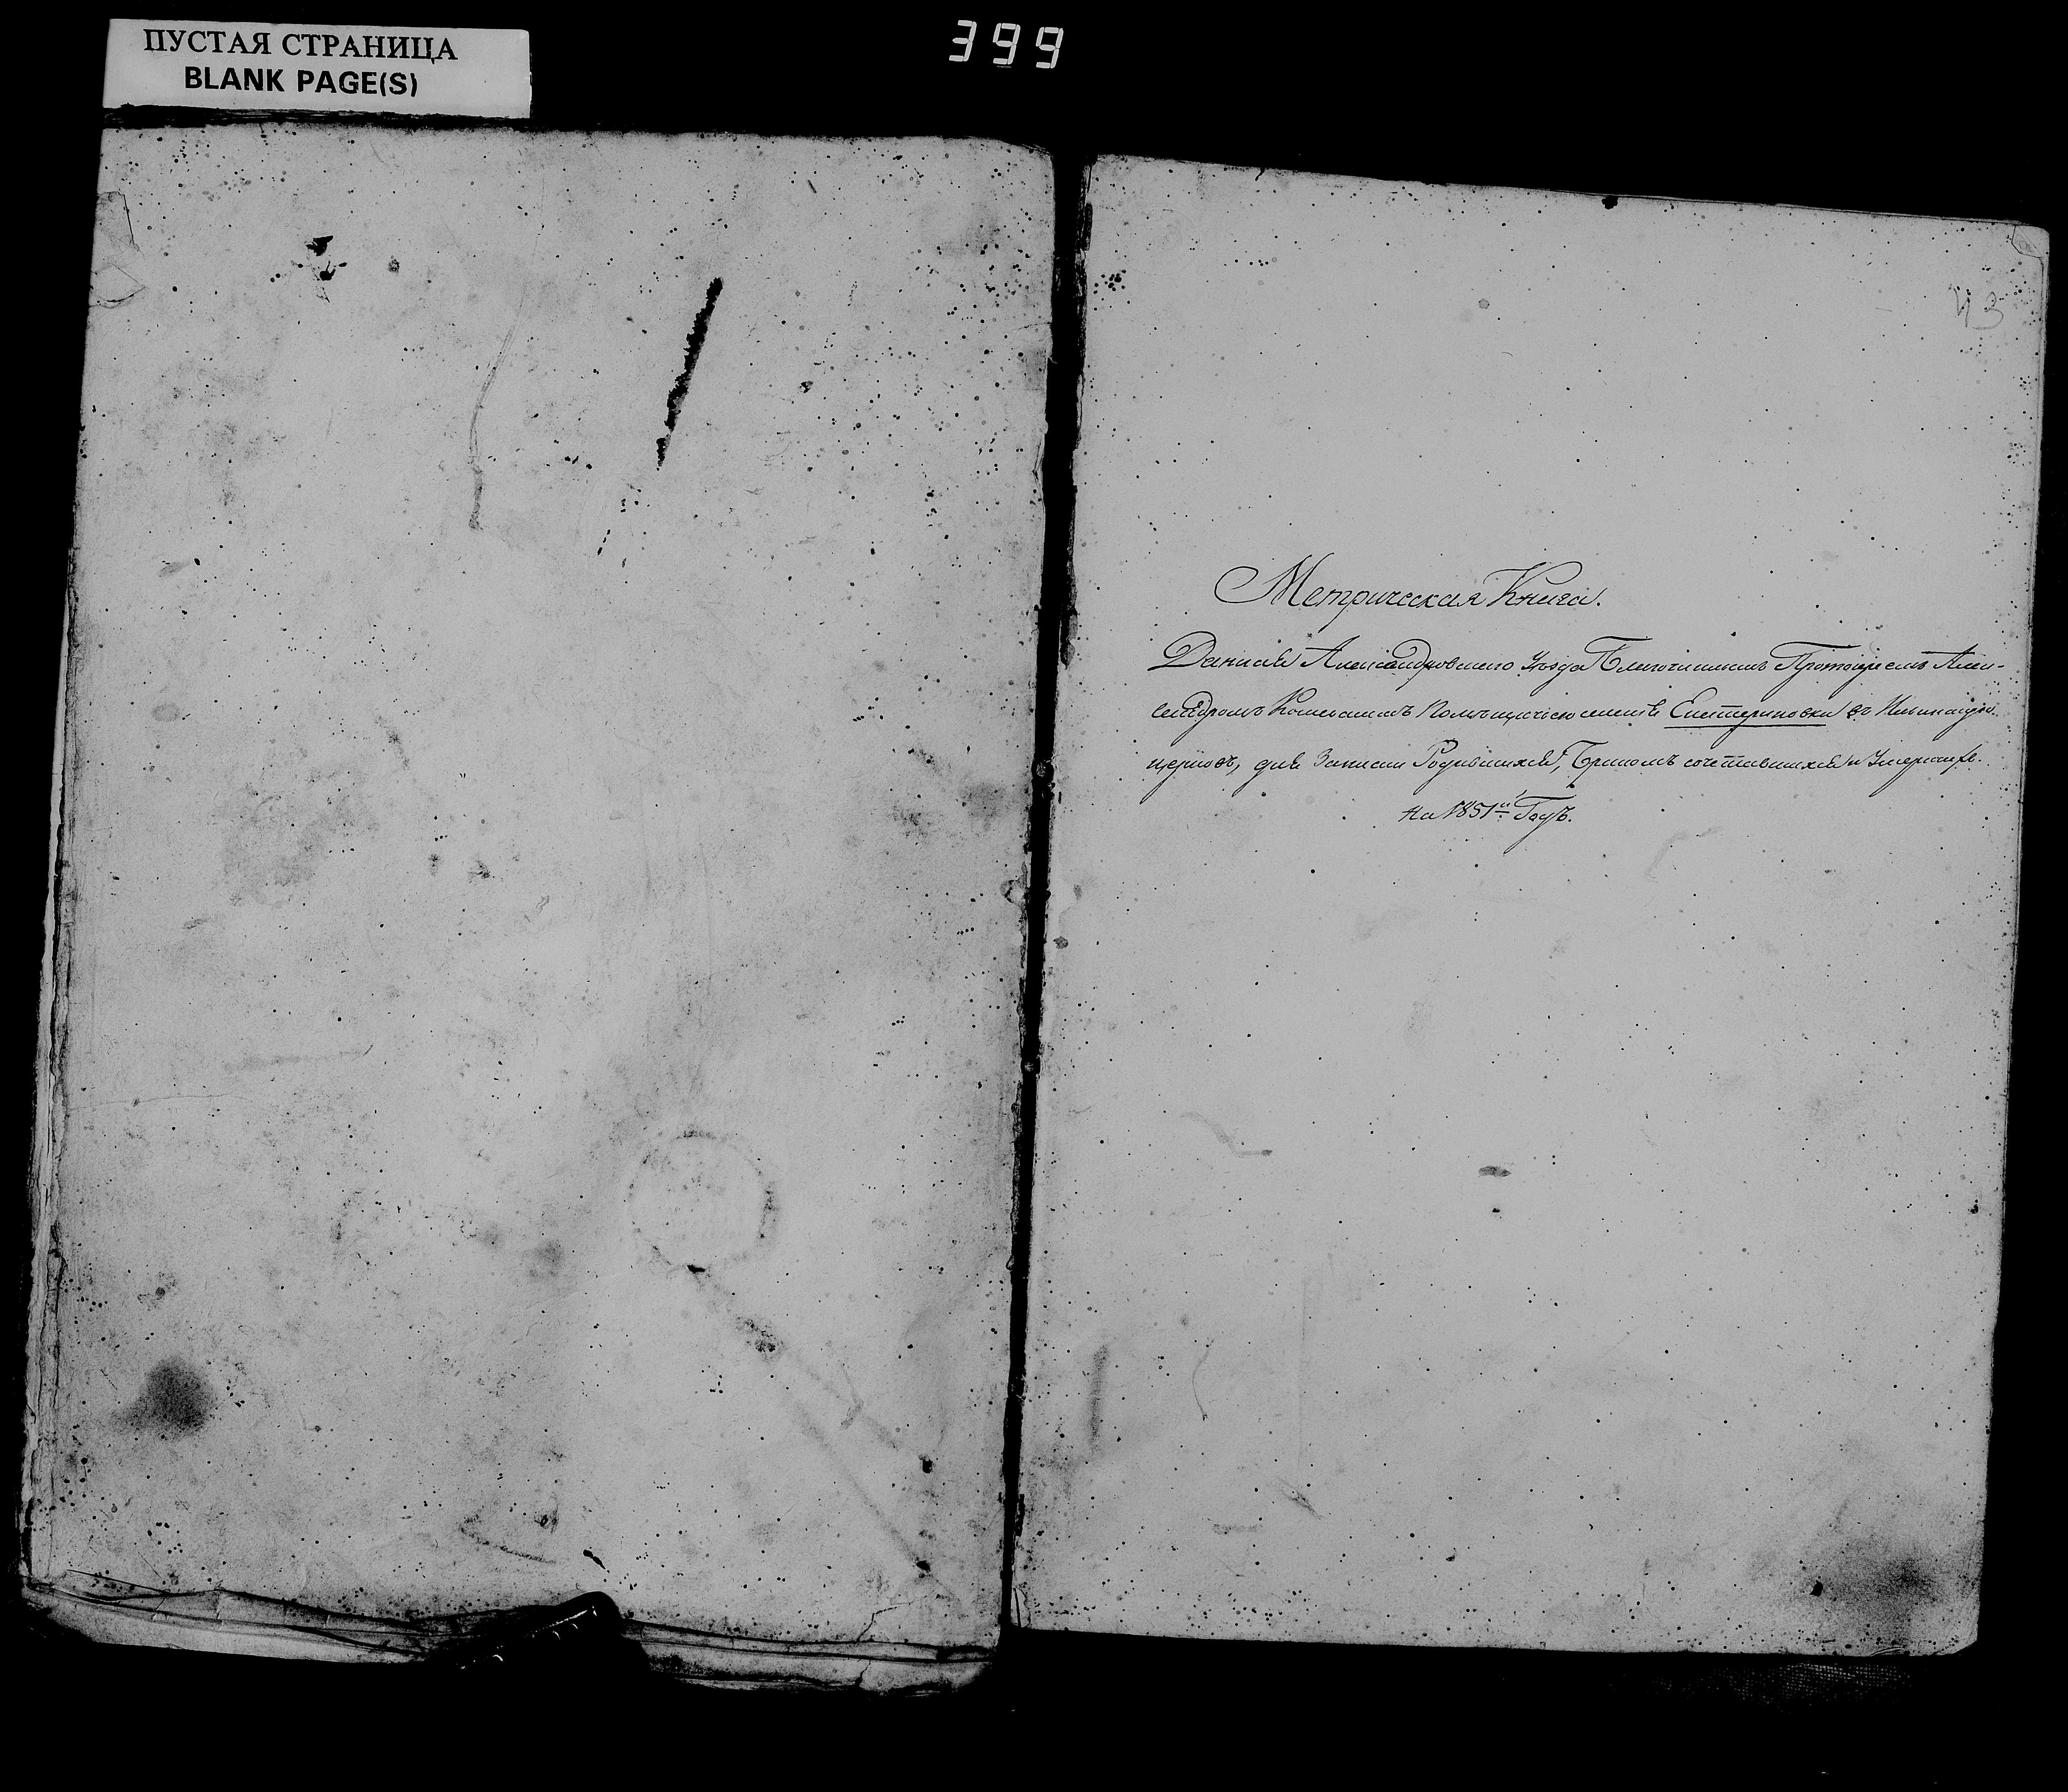 ПУСТАЯ СТРАНИЦА
BLANK PAGE(S)
399
43
Метрическая Книга.
Данная Александровскаго Уѣзда Благочиннымъ Протоіереемъ Алек-
сандромъ помѣщичьяго селенія Екатериновки въ
церковь, для Записки Родившихся, Бракомъ сочетавшихся и Умершихъ.
На 1851й Годъ.